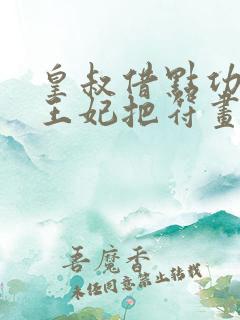 皇叔借點功
王妃把符畫
吾魔香
未经同意禁止转载